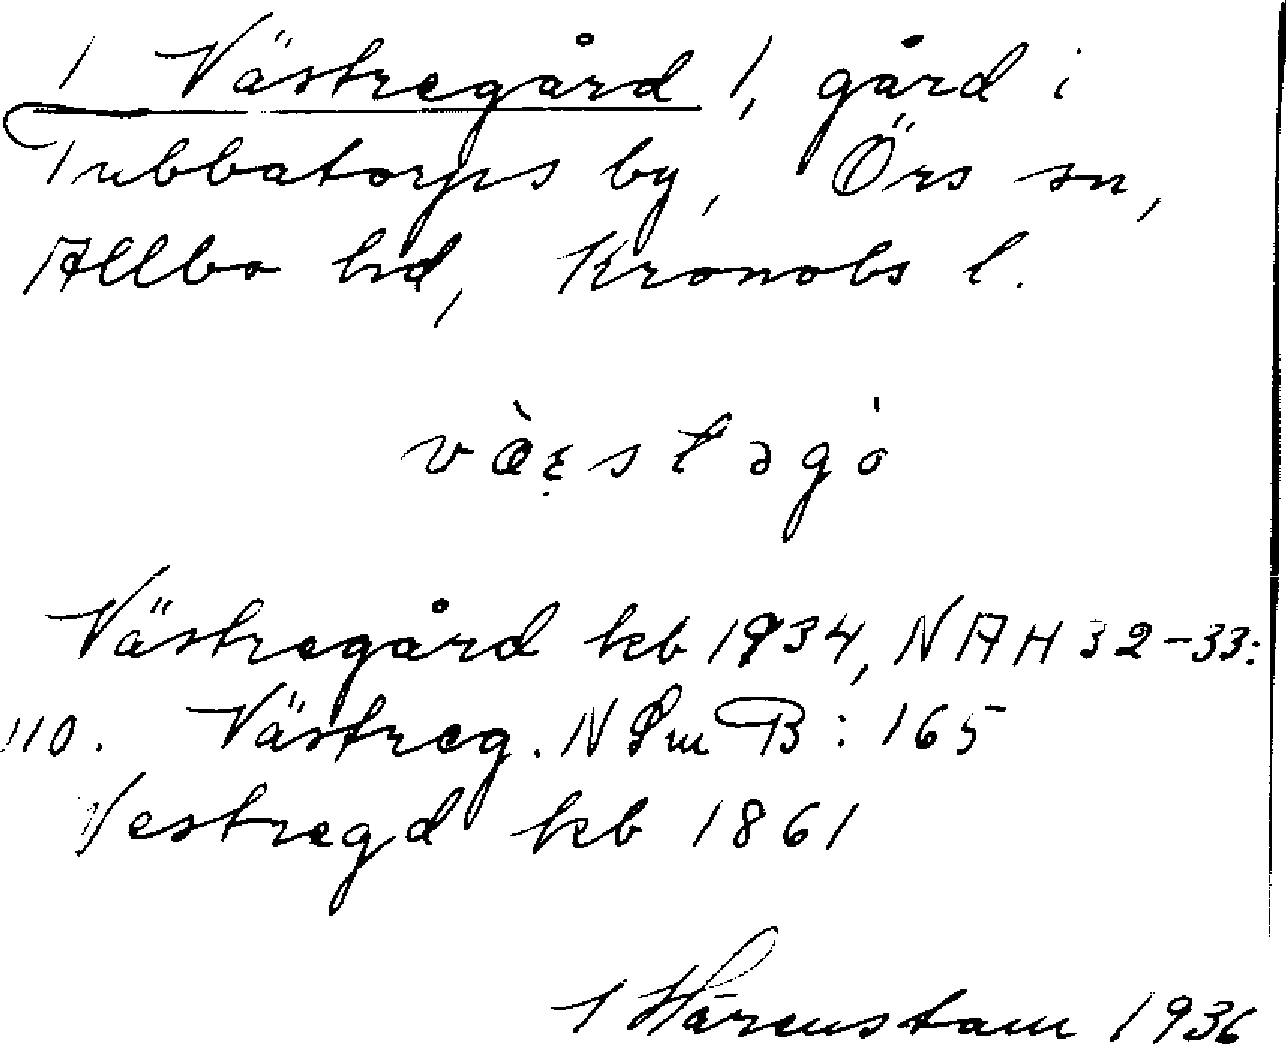 / Västregård /, gård i
Tubbatorps by, Örs sn,
Allbo hd, Kronobs l.
vàɛ̣stəgȯ
Västregård kb 1934, NAH 32-33:
110. Västreg. NSm B: 165
Vestregd kb 1861
I Härenstam 1936